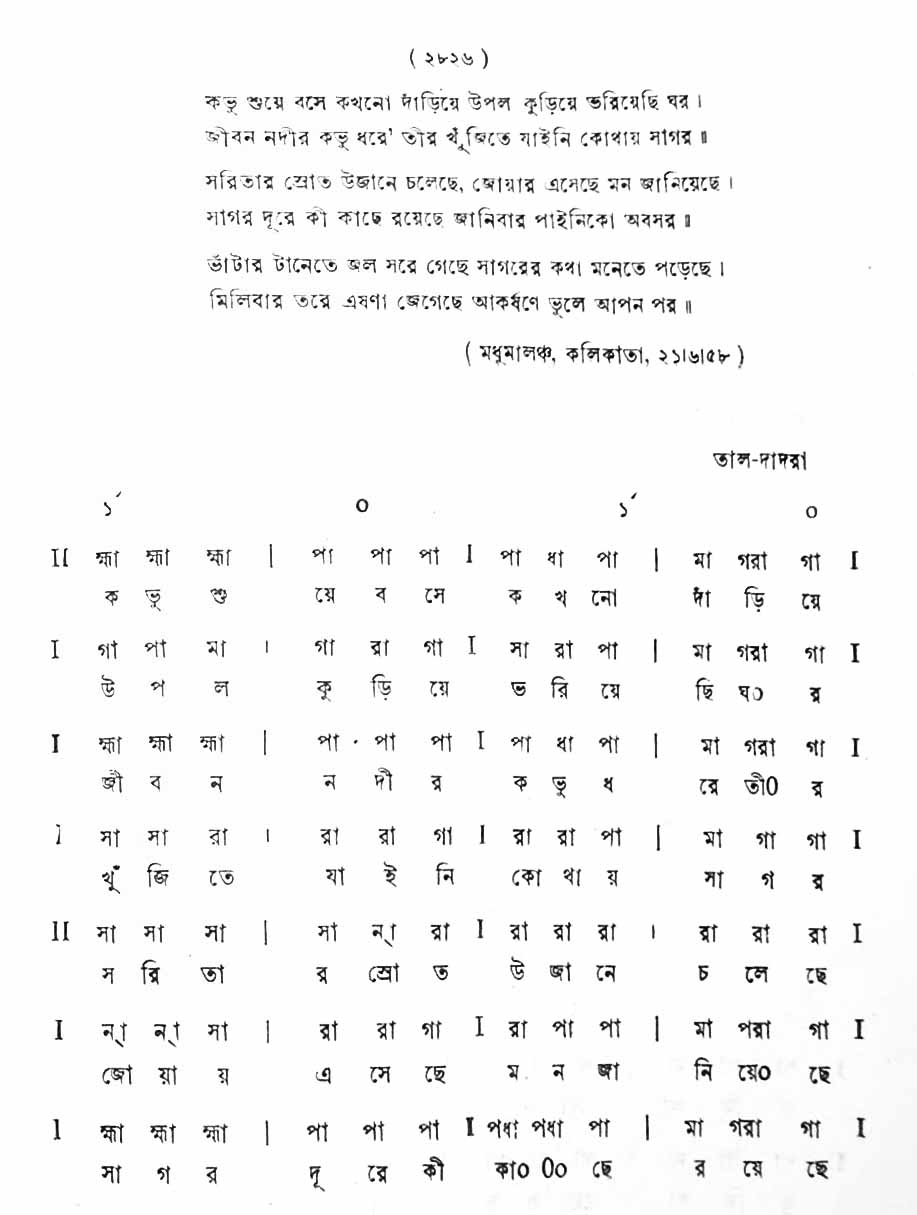 ( ২৮২৬ )
কভু শুয়ে বসে কখনো দাঁড়িয়ে উপল কুড়িয়ে ভরিয়েছি ঘর ।
জীবন নদীর কভু ধরে' তীর খুঁজিতে যাইনি কোথায় সাগর ॥
সরিতার স্রোত উজানে চলেছে, জোয়ার এসেছে মন জানিয়েছে ।
সাগর দূরে কী কাছে রয়েছে জানিবার পাইনিকো অবসর ॥
ভাঁটার টানেতে জল সরে গেছে সাগরের কথা মনেতে পড়েছে ।
মিলিবার তরে এষণা জেগেছে আকর্ষণে ভুলে আপন পর ॥
( মধুমালঞ্চ, কলিকাতা, ২১।৬।৫৮ )
তাল-দাদরা
১´ ০ ১´ ০
II হ্মা হ্মা হ্মা | পা পা পা I পা ধা পা | মা গরা গা I
ক ভু শু য়ে ব সে ক খ নো দাঁ ড়ি য়ে
I গা পা মা । গা রা গা I সা রা পা | মা গরা গা I
উ প ল কু ড়ি য়ে ভ রি য়ে ছি ঘ০ র
I হ্মা হ্মা হ্মা | পা · পা পা I পা ধা পা | মা গরা গা I
জী ব ন ন দী র ক ভু ধ রে তী০ র
I সা সা রা । রা রা গা I রা রা পা | মা গা গা I
খুঁ জি তে যা ই নি কো থা য় সা গ র
II সা সা সা | সা ন্ া রা I রা রা রা । রা রা রা I
স রি তা র স্রো ত উ জা নে চ লে ছে
I ন্ া ন্ া সা | রা রা গা I রা পা পা | মা পরা গা I
জো য়া য় এ সে ছে ম ন জা নি য়ে০ ছে
I হ্মা হ্মা হ্মা | পা পা পা I পধা পধা পা | মা গরা গা I
সা গ র দূ রে কী কা০ ০০ ছে র য়ে ছে